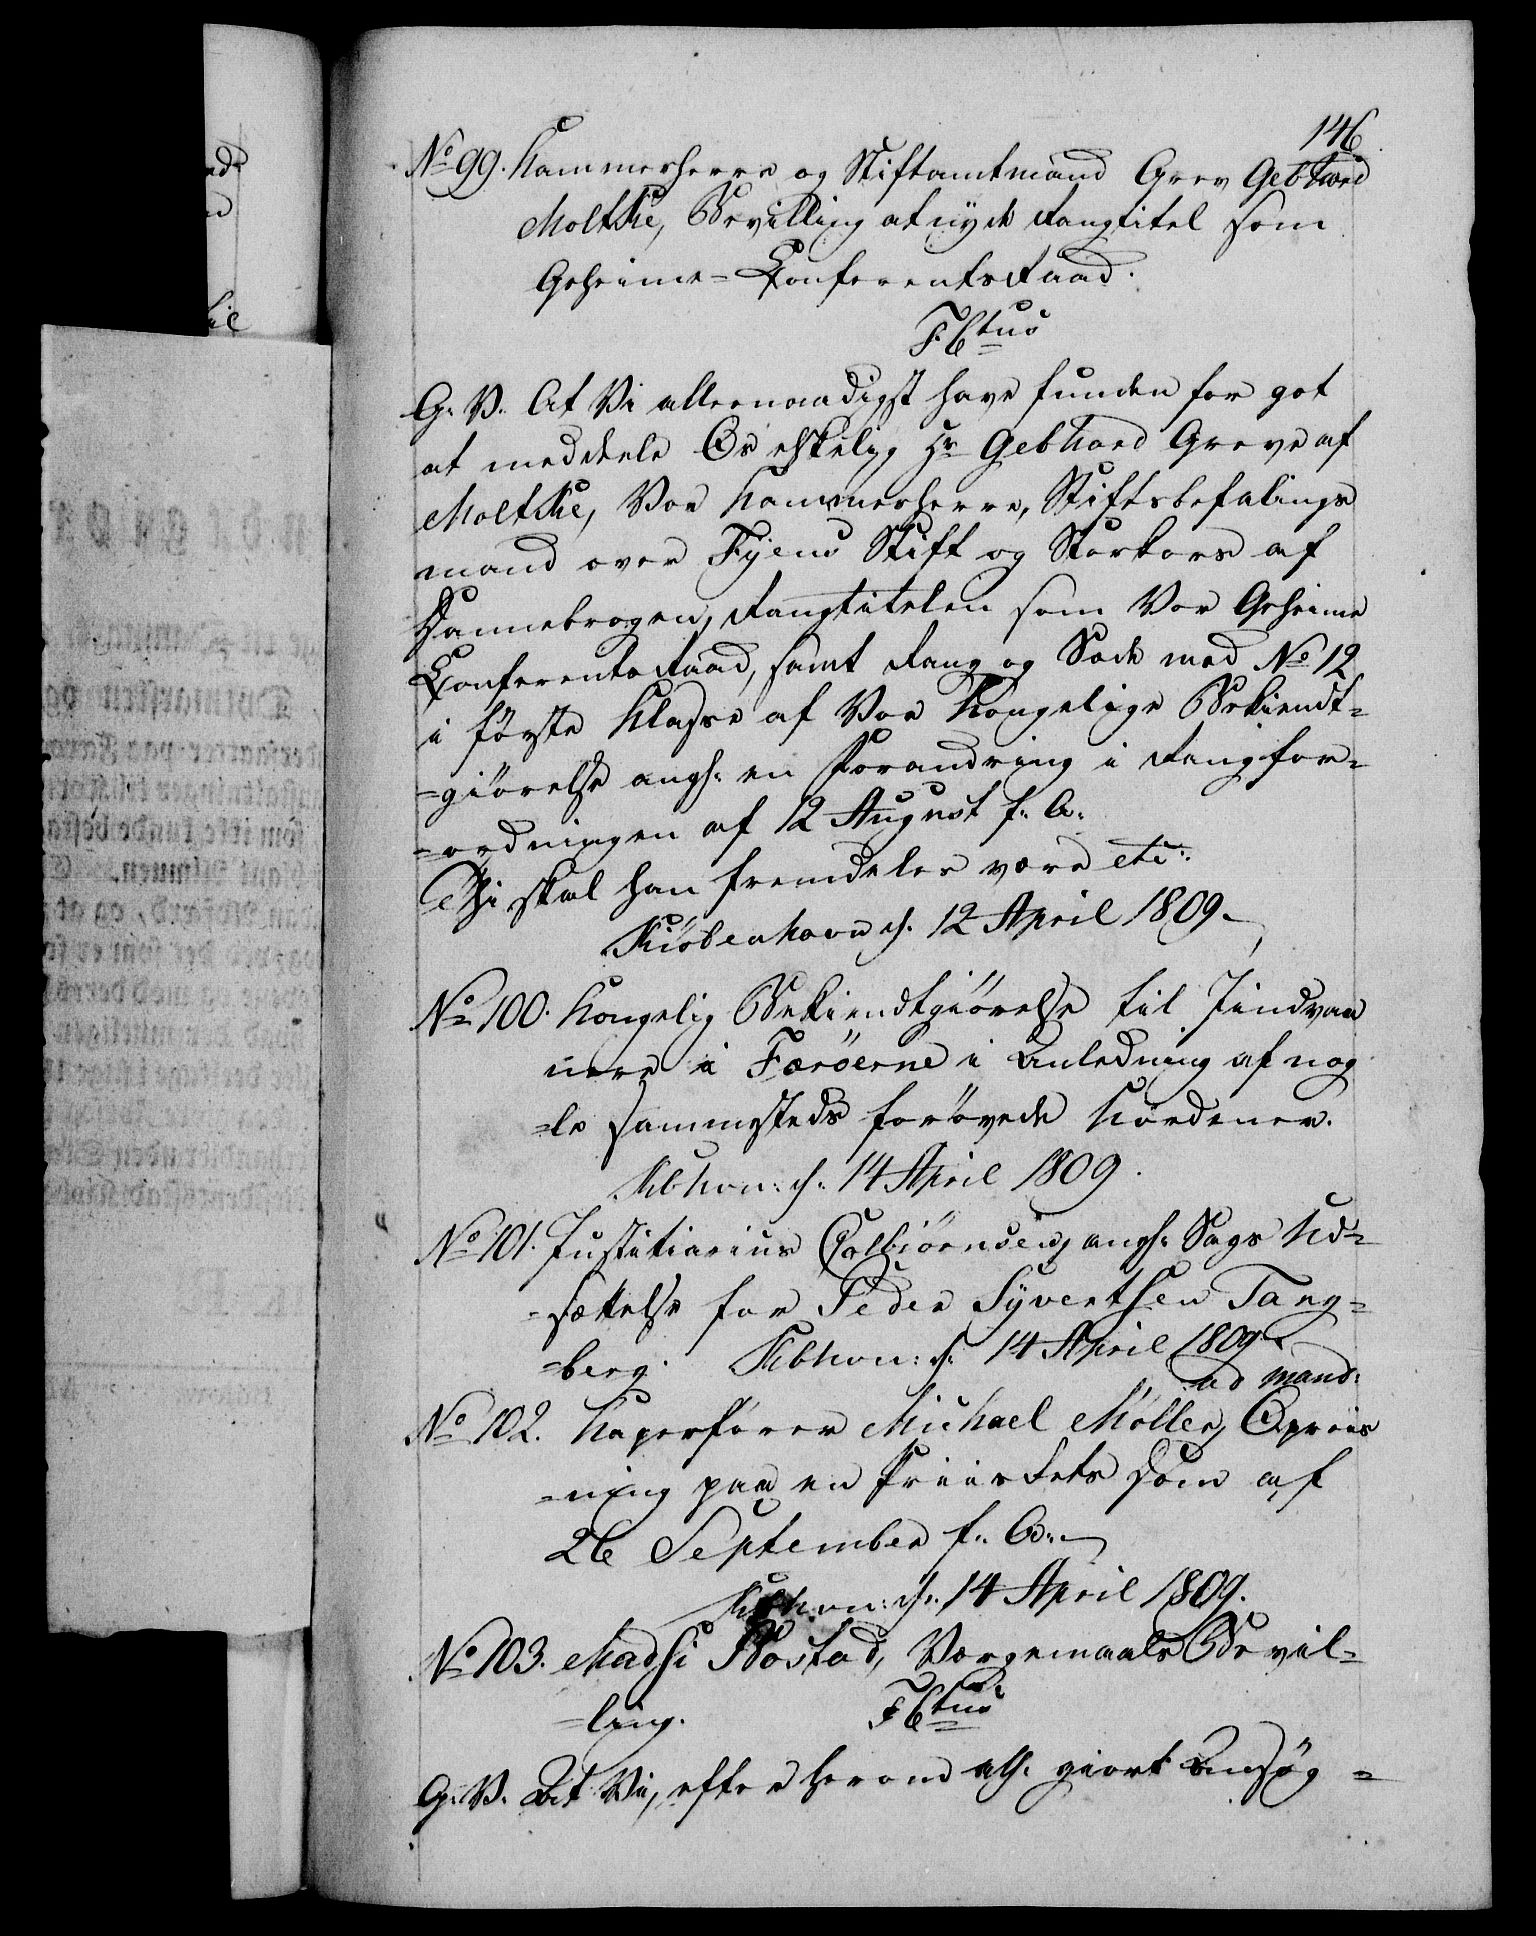 146
No 99. Kammerherre og Stiftamtmand Grev Gebhard
Moltke, Bevilling at nyde Rangtitel som
Geheime-Conferentsraad.
F. Ctus
G. V. At Vi allernaadigst have funden for got
at meddele Os elskelig Hr Gebhard Greve af
Moltke, Vor Kammerherre, Stiftsbefalings
mand over Fyens Stift og Storkors af
Dannebrogen, Rangtitelen som Vor Geheime
Conferentsraad, samt Rang og Sæde med No 12
i første Klasse af Vor Kongelige Bekiendt=
=giörelse angl: en Forandring i Rangfor=
=ordningen af 12 August f: A:
Thi skal han fremdeles være etc:
Kiöbenhavn d. 12 April 1809.
No 100. Kongelig Bekiendtgiörelse til Indvaa
nere i Færöerne i Anledning af nog
=le sammesteds forövede Uordener.
Kbhvn: d: 14 April 1809.
No 101. Justitiarius Colbiörnsen, angl: Sags Ud=
=sættelse for Peder Syvertsen Tang=
=berg. Kbhvn: d: 14 April 1809.
ad mand:
No 102. Kaperförer Michael Möller, Opreis
=ning paa en Priisrets Dom af
26 September f: A:
Kbhvn: d: 14 April 1809.
No 103. Madsi Bostad, Værgemaals Bevil=
=ling.
F. Ctus
G. V. At Vi, efter herom all: giort Ansög=